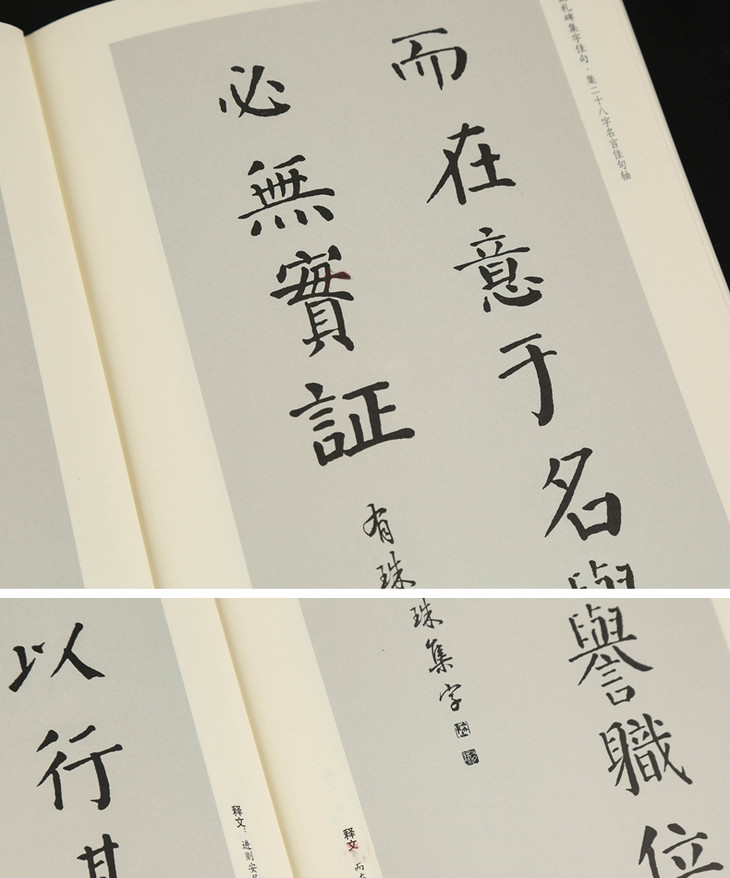 札碑集字佳句·集二十八字名言佳句轴
而在意于名
必無實証
有珠
譽職位
珠集字
以行其
释文：进则安
释文 而在